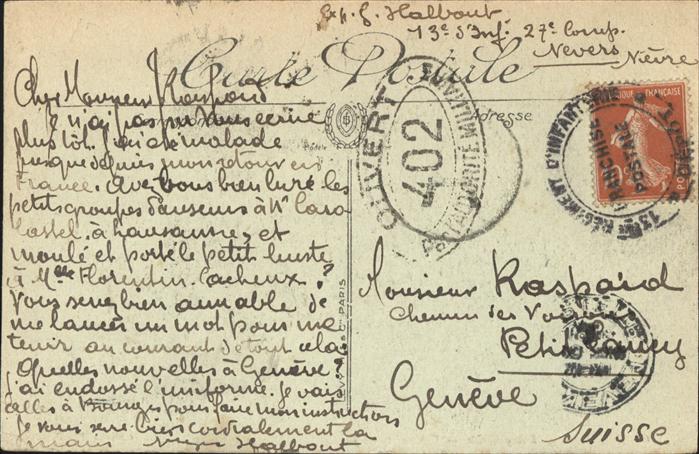 Exp. G. Halbout
13e d'Inf. 27e Comp.
Nevers
Nièvre
Carte Postale
Adresse
Cher Monsieur Raspaid
Je n'ai pas pu vous écrire
plus tôt. J'ai été malade
presque depuis mon retour en
France. Avez vous bien livré les
petits groupes danseurs à Mr
à Lausanne, et
moulé et porté le petit buste
à Mlle Florentin. Cacheux?
Vous seriez bien aimable de
me lancer un mot pour me
tenir au courant de tout cela
Quelles nouvelles à Genève?
j'ai endossé l'uniforme. Je vais
à Bourges pour faire mon instruction
Je vous serre bien cordialement la
main Halbout
OUVERT
402
PAR AUTORITÉ MILITAIRE
RÉPUBLIQUE FRANÇAISE
13me RÉGIMENT D'INFANTERIE
DÉPÔT
FRANCHISE
POSTALE
PARIS
Monsieur Raspaid
Chemin des
Petit Lancy
Genève
Suisse